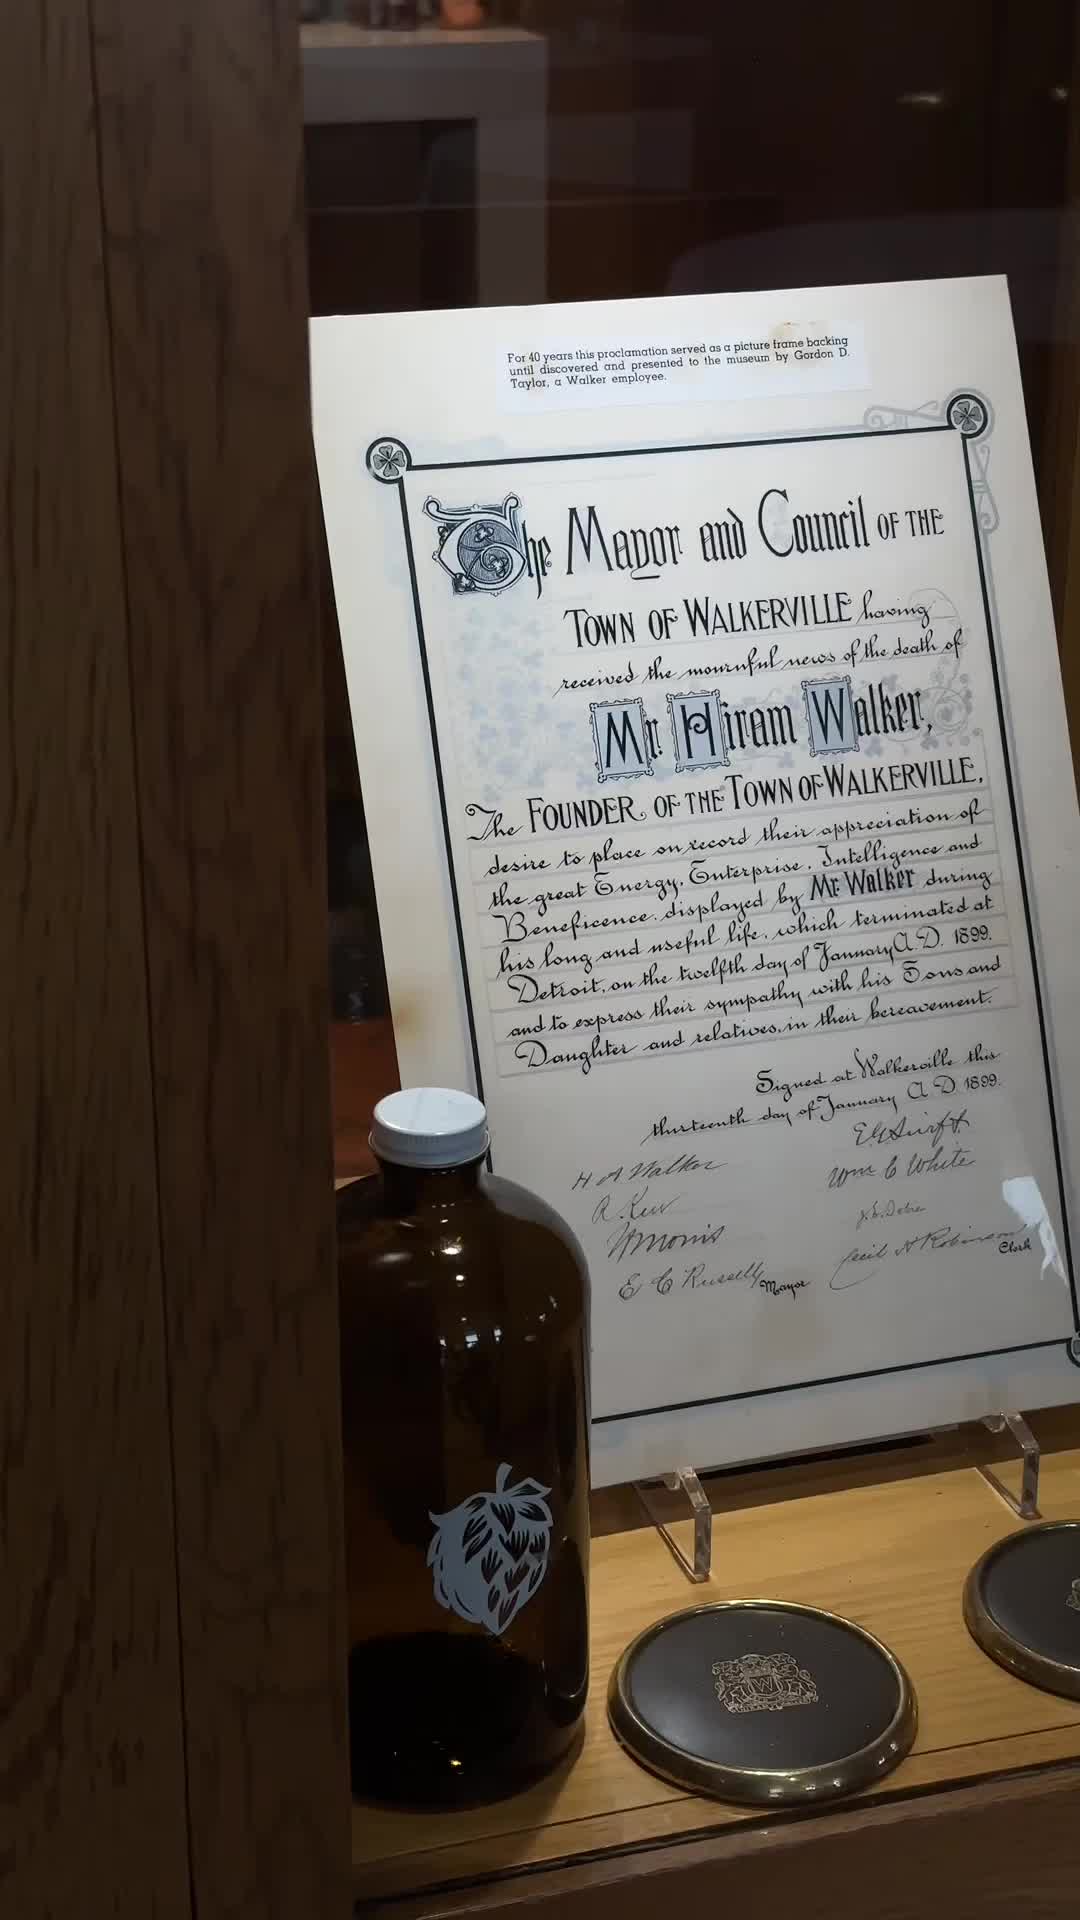 For 40 years this proclamation served as a picture frame backing
until discovered and presented to the museum by Gordon D.
Taylor, a Walker employee.
The Mayor and Council OF THE
TOWN OF WALKERVILLE having
received the mournful news of the death of
Mr. Hiram Walker,
The FOUNDER OF THE TOWN OF WALKERVILLE,
desire to place on record their appreciation of
the great Energy, Enterprise, Intelligence and
Beneficence displayed by Mr. Walker during
his long and useful life, which terminated at
Detroit, on the twelfth day of January A.D. 1899.
and to express their sympathy with his Sons and
Daughter and relatives, in their bereavement.
Signed at Walkerville this
thirteenth day of January A.D. 1899.
H A Walker
Wm C White
A. Kerr
E C Russell Mayor
Cecil H Robinson Clerk
W